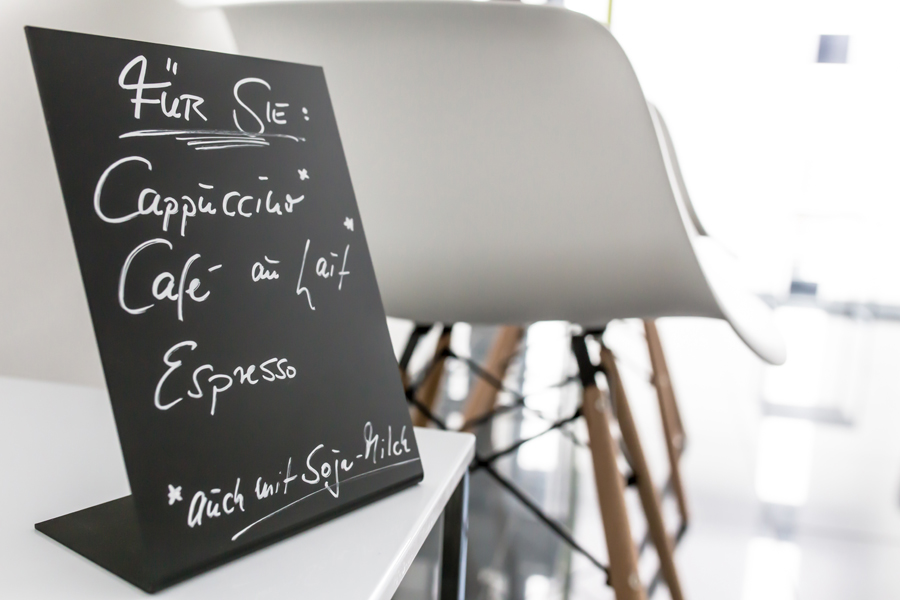 FÜR SIE:
Cappuccino*
Café au Lait*
Espresso
*auch mit Soja-Milch